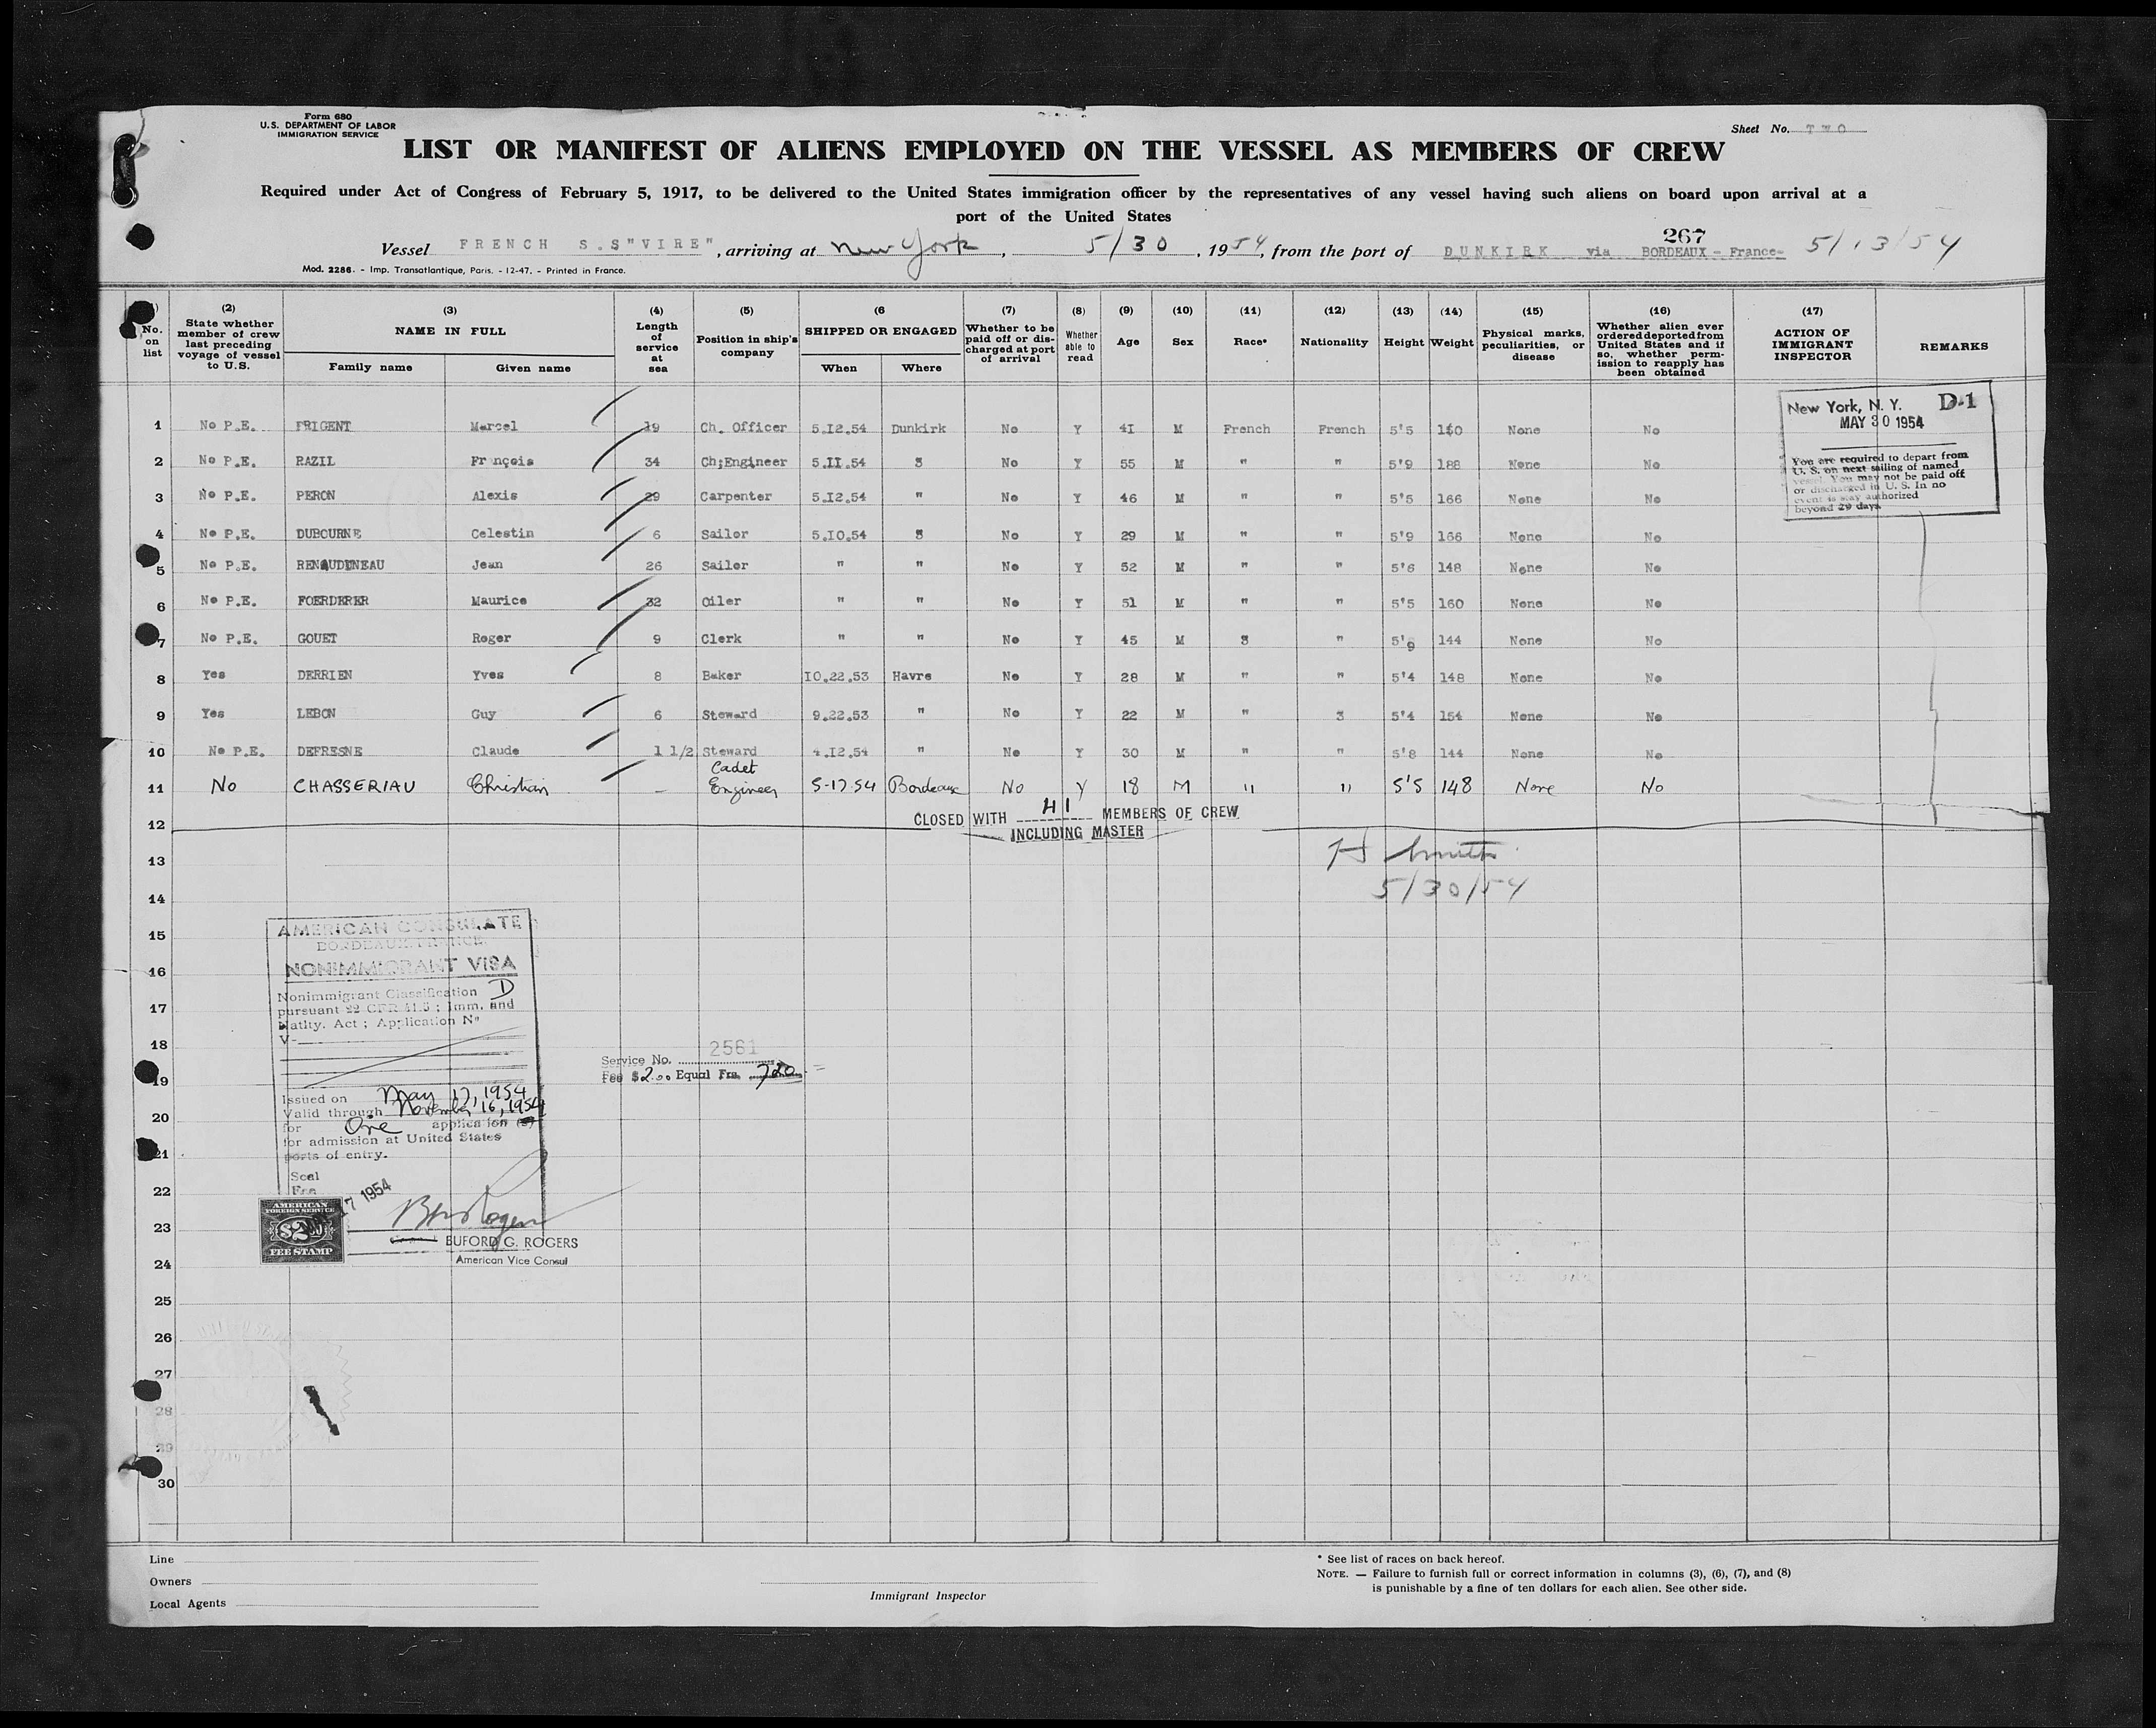 Form 680
U.S. DEPARTMENT OF LABOR
IMMIGRATION SERVICE
Sheet No. TWO
LIST OR MANIFEST OF ALIENS EMPLOYED ON THE VESSEL AS MEMBERS OF CREW
Required under Act of Congress of February 5, 1917, to be delivered to the United States immigration officer by the representatives of any vessel having such aliens on board upon arrival at a
port of the United States
267
Vessel FRENCH S.S"VIRE", arriving at New York, 5/30, 1954, from the port of DUNKIRK via BORDEAUX - France- 5/13/54
Mod. 2286. - Imp. Transatlantique, Paris. - 12-47. - Printed in France.
No. on list
(2) State whether member of crew last preceding voyage of vessel to U.S.
(3) NAME IN FULL Family name Given name
(4) Length of service at sea
(5) Position in ship's company
(6 SHIPPED OR ENGAGED When Where
(7) Whether to be paid off or discharged at port of arrival
(8) Whether able to read
(9) Age
(10) Sex
(11) Race*
(12) Nationality
(13) Height
(14) Weight
(15) Physical marks, peculiarities, or disease
(16) Whether alien ever ordered deported from United States and if so, whether permission to reapply has been obtained
(17) ACTION OF IMMIGRANT INSPECTOR
REMARKS
1 No P.E. PRIGENT Marcel 19 Ch. Officer 5.I2.54 Dunkirk No Y 4I M French French 5'5 None No
2 No P.E. RAZIL François 34 Ch;Engineer 5.II.54 " No Y 55 M " " 5'9 188 None No
3 No P.E. PERON Alexis 29 Carpenter 5.I2.54 " No Y 46 M " " 5'5 166 None No
4 No P.E. DUBOURNE Celestin 6 Sailor 5.IO.54 " No Y 29 M " " 5'9 166 None No
5 No P.E. RENAUDINEAU Jean 26 Sailor " " No Y 52 M " " 5'6 148 None No
6 No P.E. FOERDERER Maurice 32 Oiler " " No Y 51 M " " 5'5 160 None No
7 No P.E. GOUET Roger 9 Clerk " " No Y 45 M " " 5'9 144 None No
8 Yes DERRIEN Yves 8 Baker IO.22.53 Havre No Y 28 M " " 5'4 148 None No
9 Yes LEBON Guy 6 Steward 9.22.53 " No Y 22 M " " 5'4 154 None No
10 No P.E. DEFRESNE Claude 1 1/2 Steward 4.I2.54 " No Y 30 M " " 5'8 144 None No
11 No CHASSERIAU Christian - Cadet Engineer 5-17-54 Bordeaux No Y 18 M " " 5'5 148 None No
New York, N. Y. D-1
MAY 30 1954
You are required to depart from
U. S. on next sailing of named
vessel. You may not be paid off
or discharged in U. S. In no
event is stay authorized
beyond 29 days
CLOSED WITH 41 MEMBERS OF CREW
INCLUDING MASTER
12
H Smith
13
5/30/54
14
15
16
17
18
19
20
21
22
23
24
25
26
27
28
29
30
AMERICAN CONSULATE
BORDEAUX, FRANCE
NONIMMIGRANT VISA
Nonimmigrant Classification D
pursuant 22 CFR 41.5 ; Imm. and
Natlty. Act ; Application Nº
V-
Issued on May 17, 1954
Valid through November 16, 1954
for One application (s)
for admission at United States
ports of entry.
Seal
Fee
17 1954
AMERICAN
FOREIGN SERVICE
$2.00
FEE STAMP
BUFORD G. ROGERS
American Vice Consul
Service No. 2561
Fee $2.00 Equal Frs. 720
Line
Owners
Local Agents
Immigrant Inspector
* See list of races on back hereof.
NOTE. — Failure to furnish full or correct information in columns (3), (6), (7), and (8)
is punishable by a fine of ten dollars for each alien. See other side.